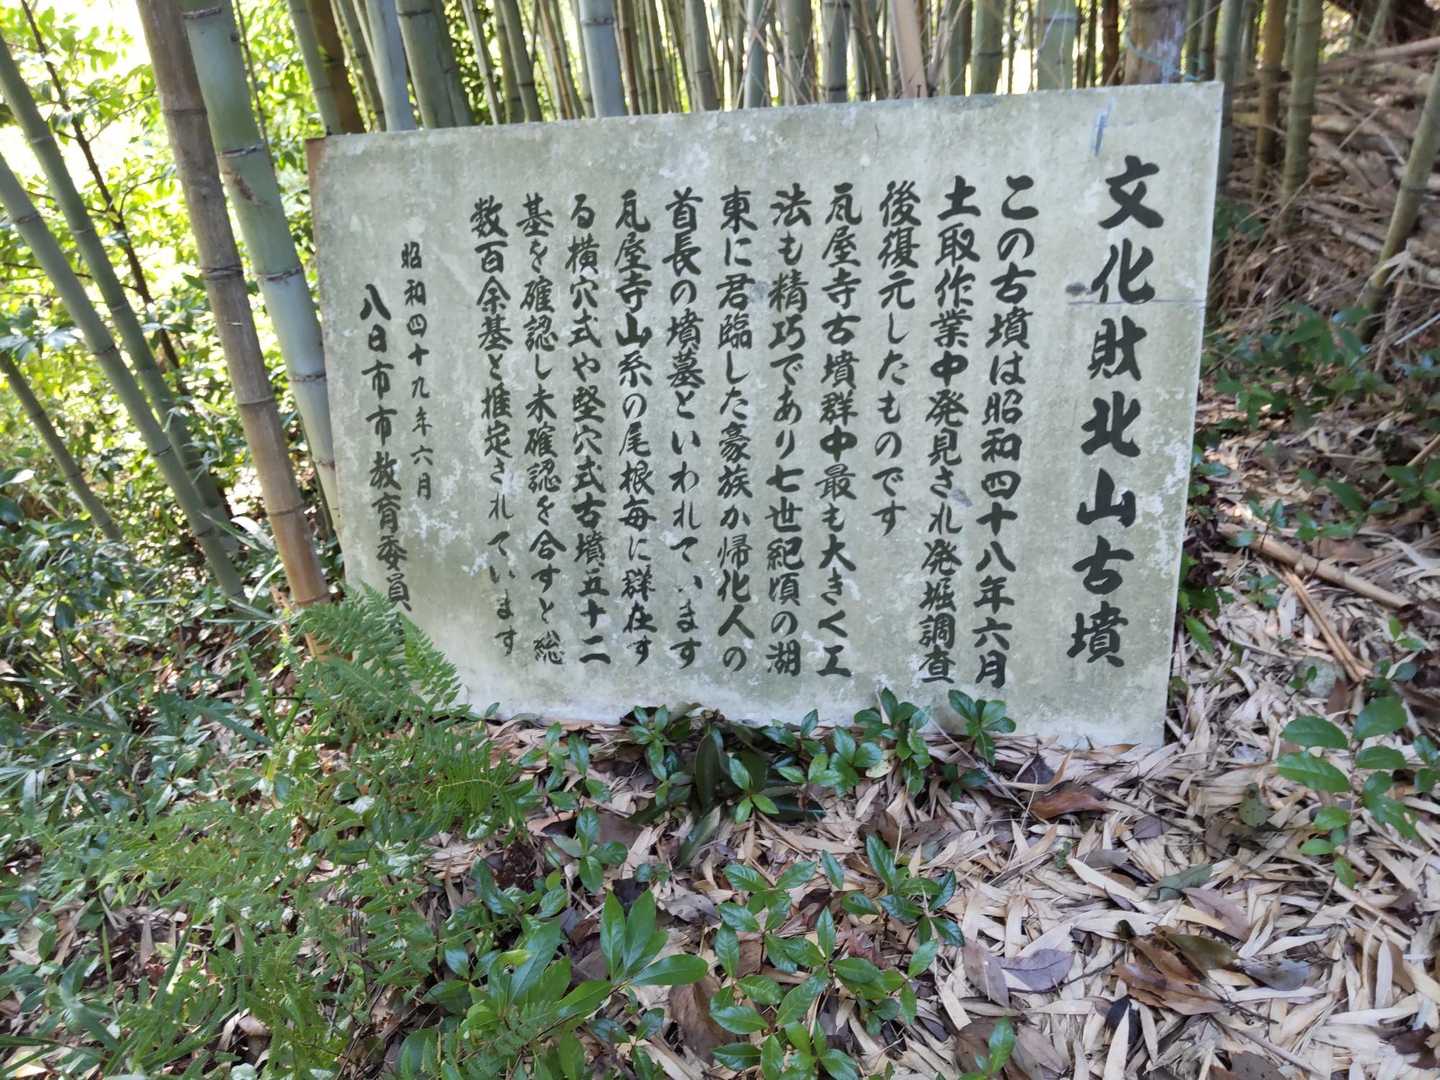 文化財北山古墳
この古墳は昭和四十八年六月
土取作業中発見され発掘調査
後復元したものです
瓦屋寺古墳群中最も大きく工
法も精巧であり七世紀頃の湖
東に君臨した豪族か帰化人の
首長の墳墓といわれています
瓦屋寺山系の尾根毎に群在す
る横穴式や竪穴式古墳五十二
基を確認し未確認を合すと総
数百余基と推定されています
昭和四十九年六月
八日市市教育委員